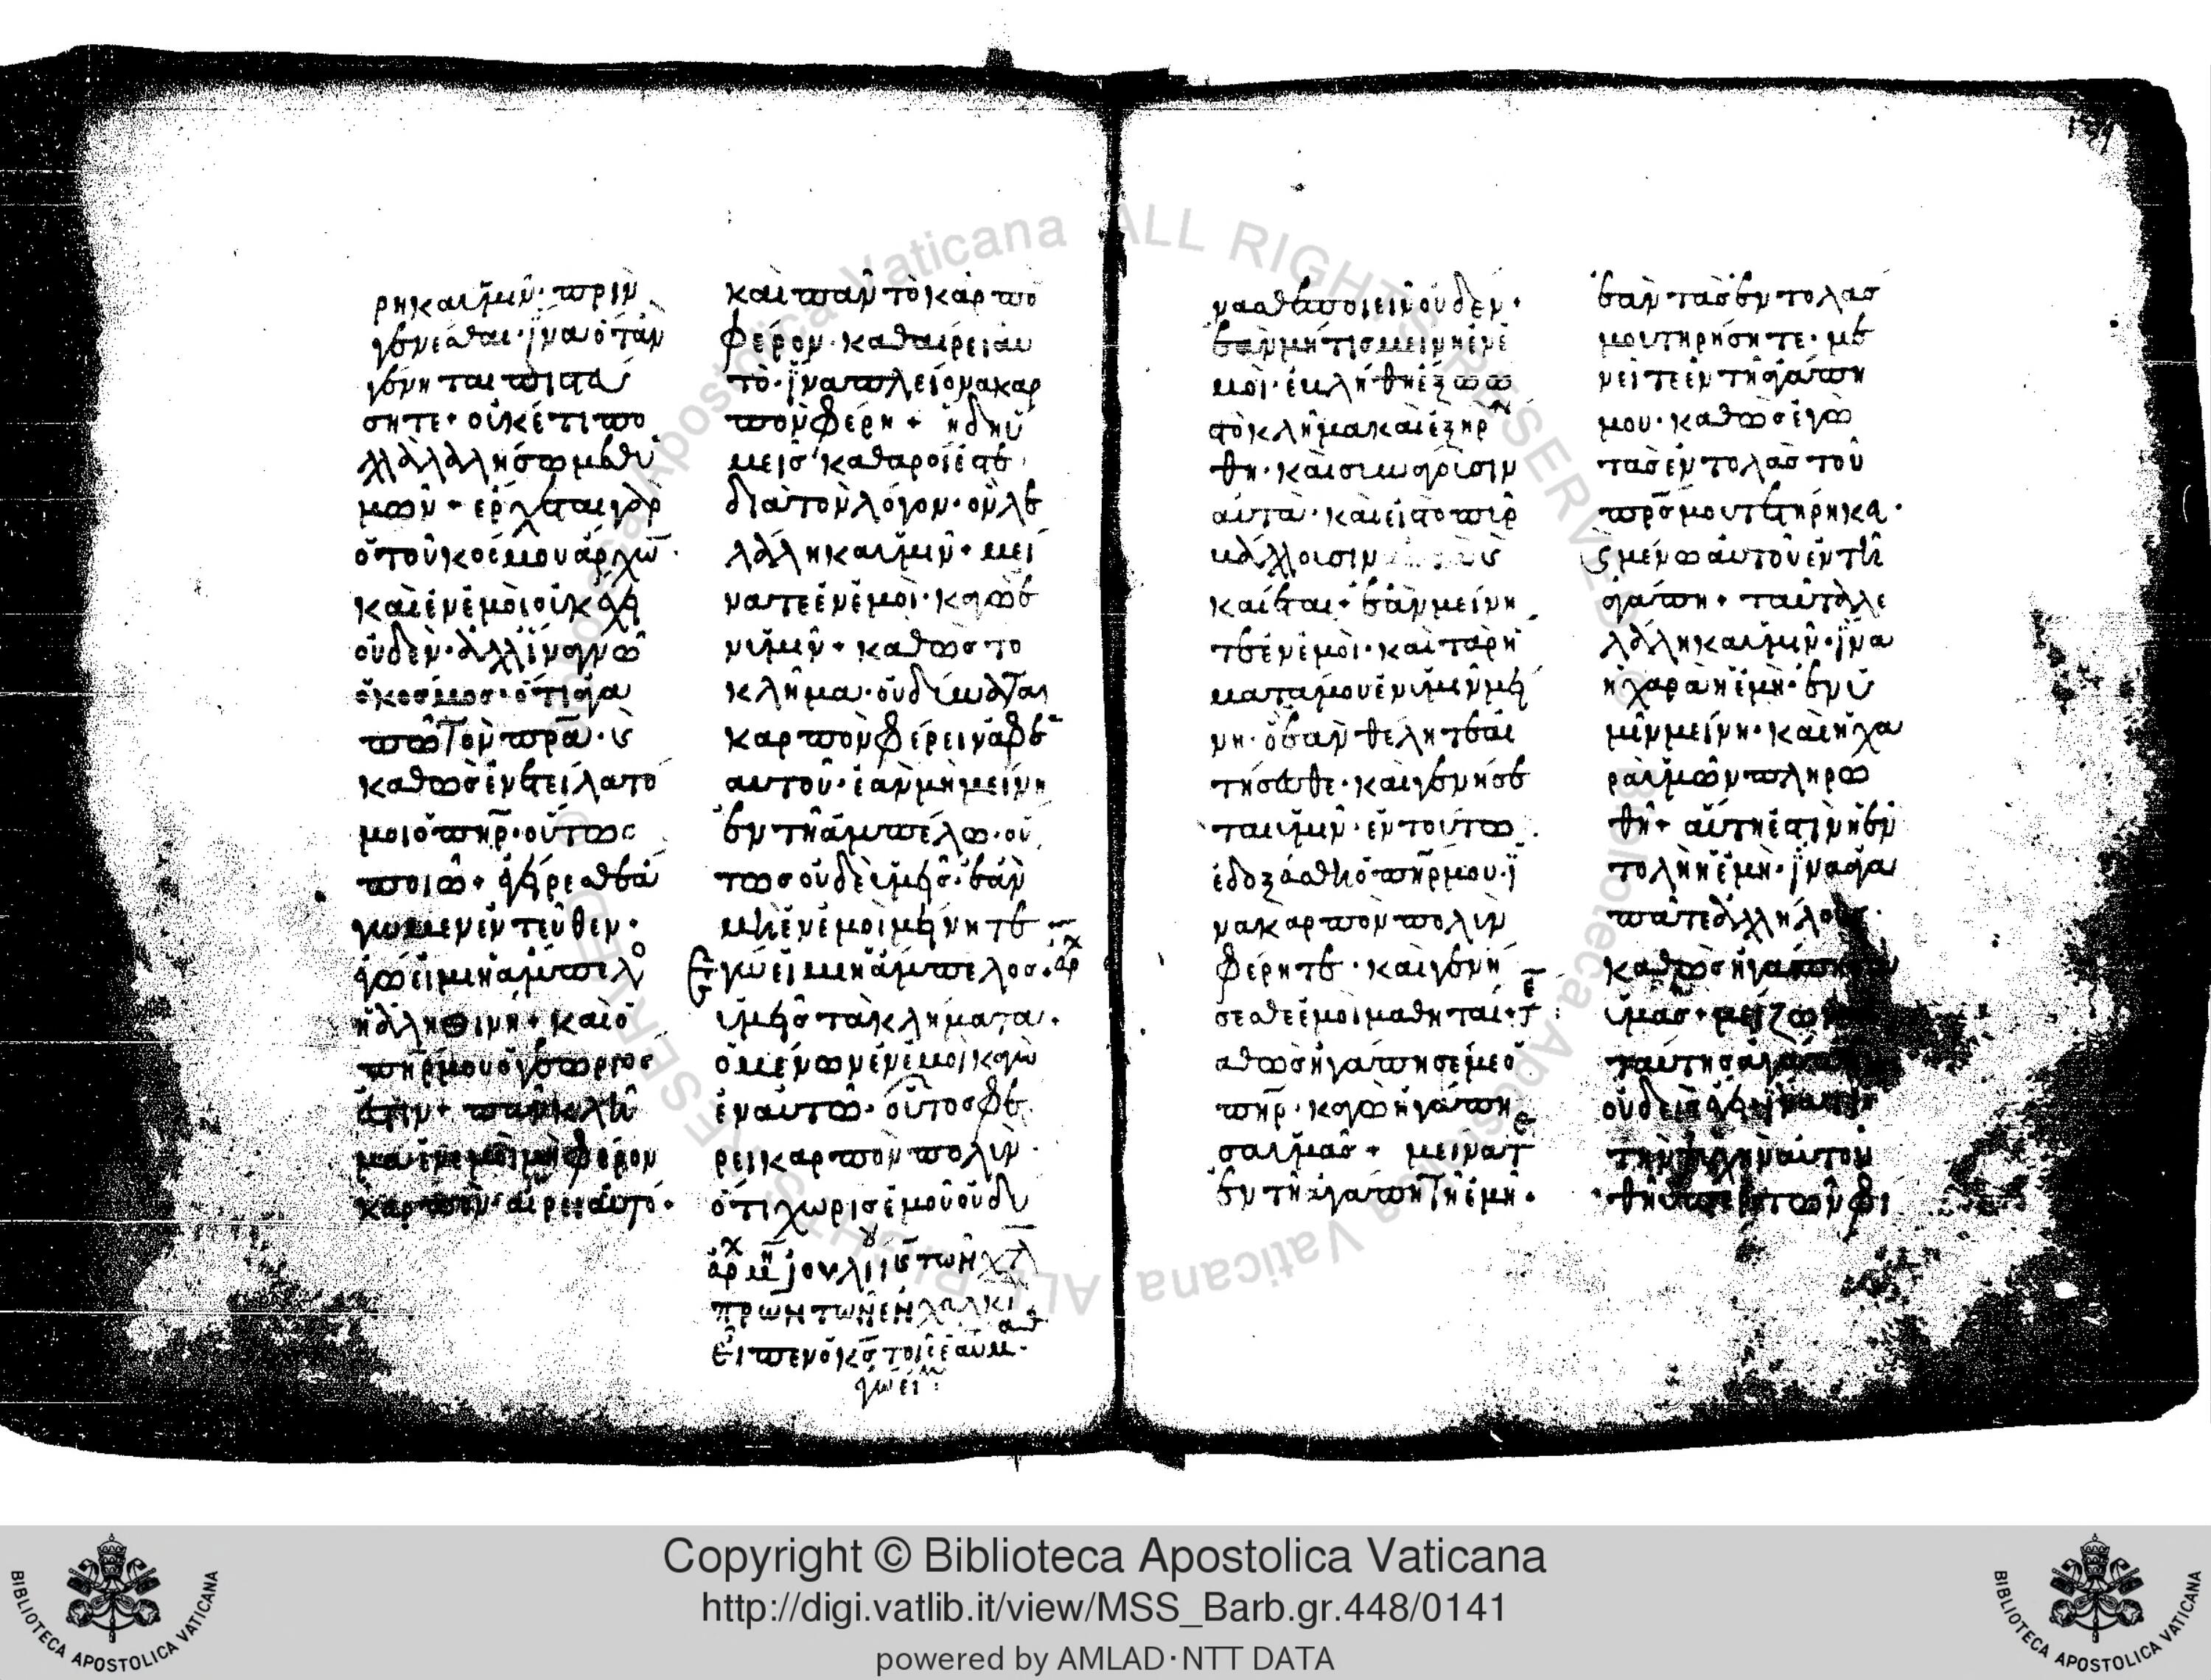 ρηκα ὑμῖν· πρὶν
γενέσθαι· ἵνα ὅταν
γένηται πιστεύ
σητε· οὐκέτι πο
λλὰ λαλήσω μεθ ὑ
μῶν· ἔρχεται γὰρ
ὁ τοῦ κόσμου ἄρχων·
καὶ ἐν ἐμοὶ οὐκ ἔχει
οὐδὲν· ἀλλ ἵνα γνῶ
ὁ κόσμος· ὅτι ἀγα
πῶ τὸν πρα· καὶ
καθὼς ἐνετείλατό
μοι ὁ πηρ· οὕτως
ποιῶ· ἐγείρεσθε ἄ
γωμεν ἐντεῦθεν·
ἐγώ εἰμι ἡ ἄμπελος
ἡ ἀληθινὴ· καὶ ὁ
πηρ μου ὁ γεωργός
ἐστιν· πᾶν κλῆ
μα ἐν ἐμοὶ μὴ φέρον
καρπὸν· αἴρει αὐτό·
καὶ πᾶν τὸ καρπο
φέρον· καθαίρει αυ
τὸ· ἵνα πλείονα καρ
πὸν φέρη· ἤδη ὑ
μεῖς καθαροί ἐστε
διὰ τὸν λόγον· ὃν λε
λάληκα ὑμῖν· μεί
νατε ἐν ἐμοὶ· καγὼ ἐ
ν ὑμῖν· καθὼς τὸ
κλῆμα· οὐ δύναται
καρπὸν φέρειν ἀφ ἑ
αυτοῦ· ἐὰν μὴ μείνη
ἐν τῆ ἀμπέλω· οὕ
τως οὐδὲ ὑμεῖς· ἐὰν
μὴ ἐν ἐμοὶ μείνητε
Ἐγώ εἰμι ἡ ἄμπελος· αρχ
ὑμεῖς τὰ κλήματα·
ὁ μένων ἐν ἐμοὶ καγὼ
ἐν αὐτῶ· οὗτος φέ
ρει καρπὸν πολὺν·
ὅτι χωρὶς ἐμοῦ οὐ δύ
πρωὶ τῶν ἐν χαλκι
Εἶπεν ὁ κς τοῖς ἑαυ μαθ·
ἐγώ εἰμι:
νασθε ποιεῖν οὐδέν·
ἐὰν μή τις μείνη ἐν ἐ
μοὶ· ἐβλήθη ἔξω ὡς
τὸ κλῆμα καὶ ἐξηράν
θη· καὶ συνάγουσιν
αὐτὰ· καὶ εἰς τὸ πῦρ
βάλλουσιν καὶ
καίεται· ἐὰν μείνη
τε ἐν ἐμοὶ· καὶ τὰ ῥή
ματά μου ἐν ὑμῖν μεί
νη· ὃ ἐὰν θέλητε αἰ
τήσεσθε· καὶ γενήσε
ται ὑμῖν· ἐν τούτω
ἐδοξάσθη ὁ πηρ μου· ἵ
να καρπὸν πολὺν
φέρητε· καὶ γενή
σεσθε ἐμοὶ μαθηταί· κ
αθὼς ἠγάπησέ με ὁ
πηρ· καγὼ ἠγάπη
σα ὑμᾶς· μείνατε
ἐν τῆ ἀγάπη τῆ ἐμῆ·
ἐὰν τὰς ἐντολάς
μου τηρήσητε· με
νεῖτε ἐν τῆ ἀγάπη
μου· καθὼς ἐγὼ
τὰς ἐντολὰς τοῦ
πρς μου τετήρηκα·
καὶ μένω αὐτοῦ ἐν τῆ
ἀγάπη· ταῦτα λε
λάληκα ὑμῖν· ἵνα
ἡ χαρὰ ἡ ἐμὴ· ἐν ὑ
μῖν μείνη· καὶ ἡ χα
ρὰ ὑμῶν πληρω
θῆ· αὕτη ἐστὶν ἡ ἐν
τολὴ ἡ ἐμὴ· ἵνα ἀγα
πᾶτε ἀλλήλους·
καθὼς ἠγάπησα
ὑμᾶς· μείζονα
ταύτης ἀγάπην
οὐδεὶς ἔχει ἵνα τις
τὴν ψυχὴν αὐτοῦ
θῆ ὑπὲρ τῶν φί
Copyright © Biblioteca Apostolica Vaticana
http://digi.vatlib.it/view/MSS_Barb.gr.448/0141
powered by AMLAD·NTT DATA
BIBLIOTECA APOSTOLICA VATICANA
BIBLIOTECA APOSTOLICA VATICANA